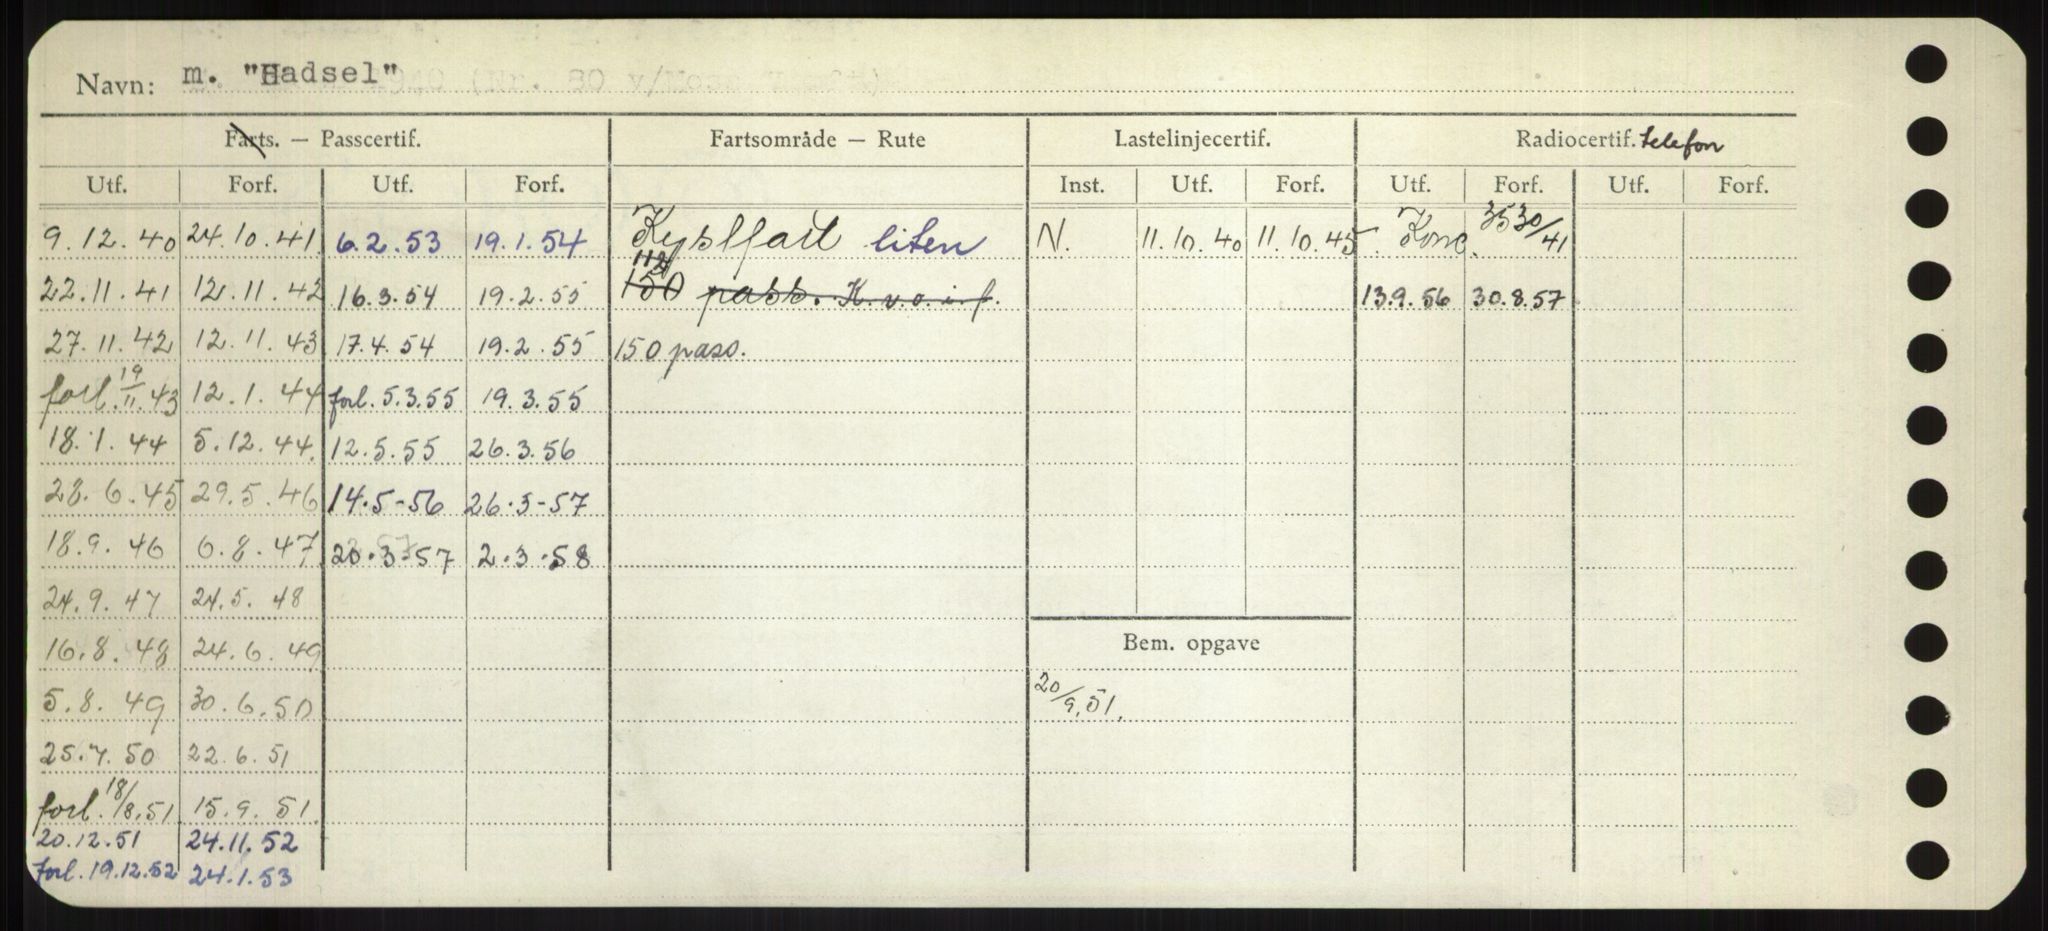 Navn: m. "Hadsel"
Farts. — Passcertif. Fartsområde — Rute Lastelinjecertif. Radiocertif. telefon
Utf. Forf. Utf. Forf. Inst. Utf. Forf. Utf. Forf. Utf. Forf.
9.12.40 24.10.41 6.2.53 19.1.54 Kystfart liten N. 11.10.40 11.10.45 Konc. 3530/41
112
22.11.41 12.11.42 16.3.54 19.2.55 150 pass. K.v.o.i.f. 13.9.56 30.8.57
27.11.42 12.11.43 17.4.54 19.2.55 150 pass.
forl. 19/11.43 12.1.44 forl. 5.3.55 19.3.55
18.1.44 5.12.44. 12.5.55 26.3.56
28.6.45 29.5.46 14.5-56 26.3-57
18.9.46 6.8.47 20.3.57 2.3.58
24.9.47 24.5.48
16.8.48 24.6.49 Bem. opgave
5.8.49 30.6.50 20/9.51.
25.7.50 22.6.51
forl. 18/8.51. 15.9.51.
20.12.51 24.11.52
forl. 19.12.52 24.1.53